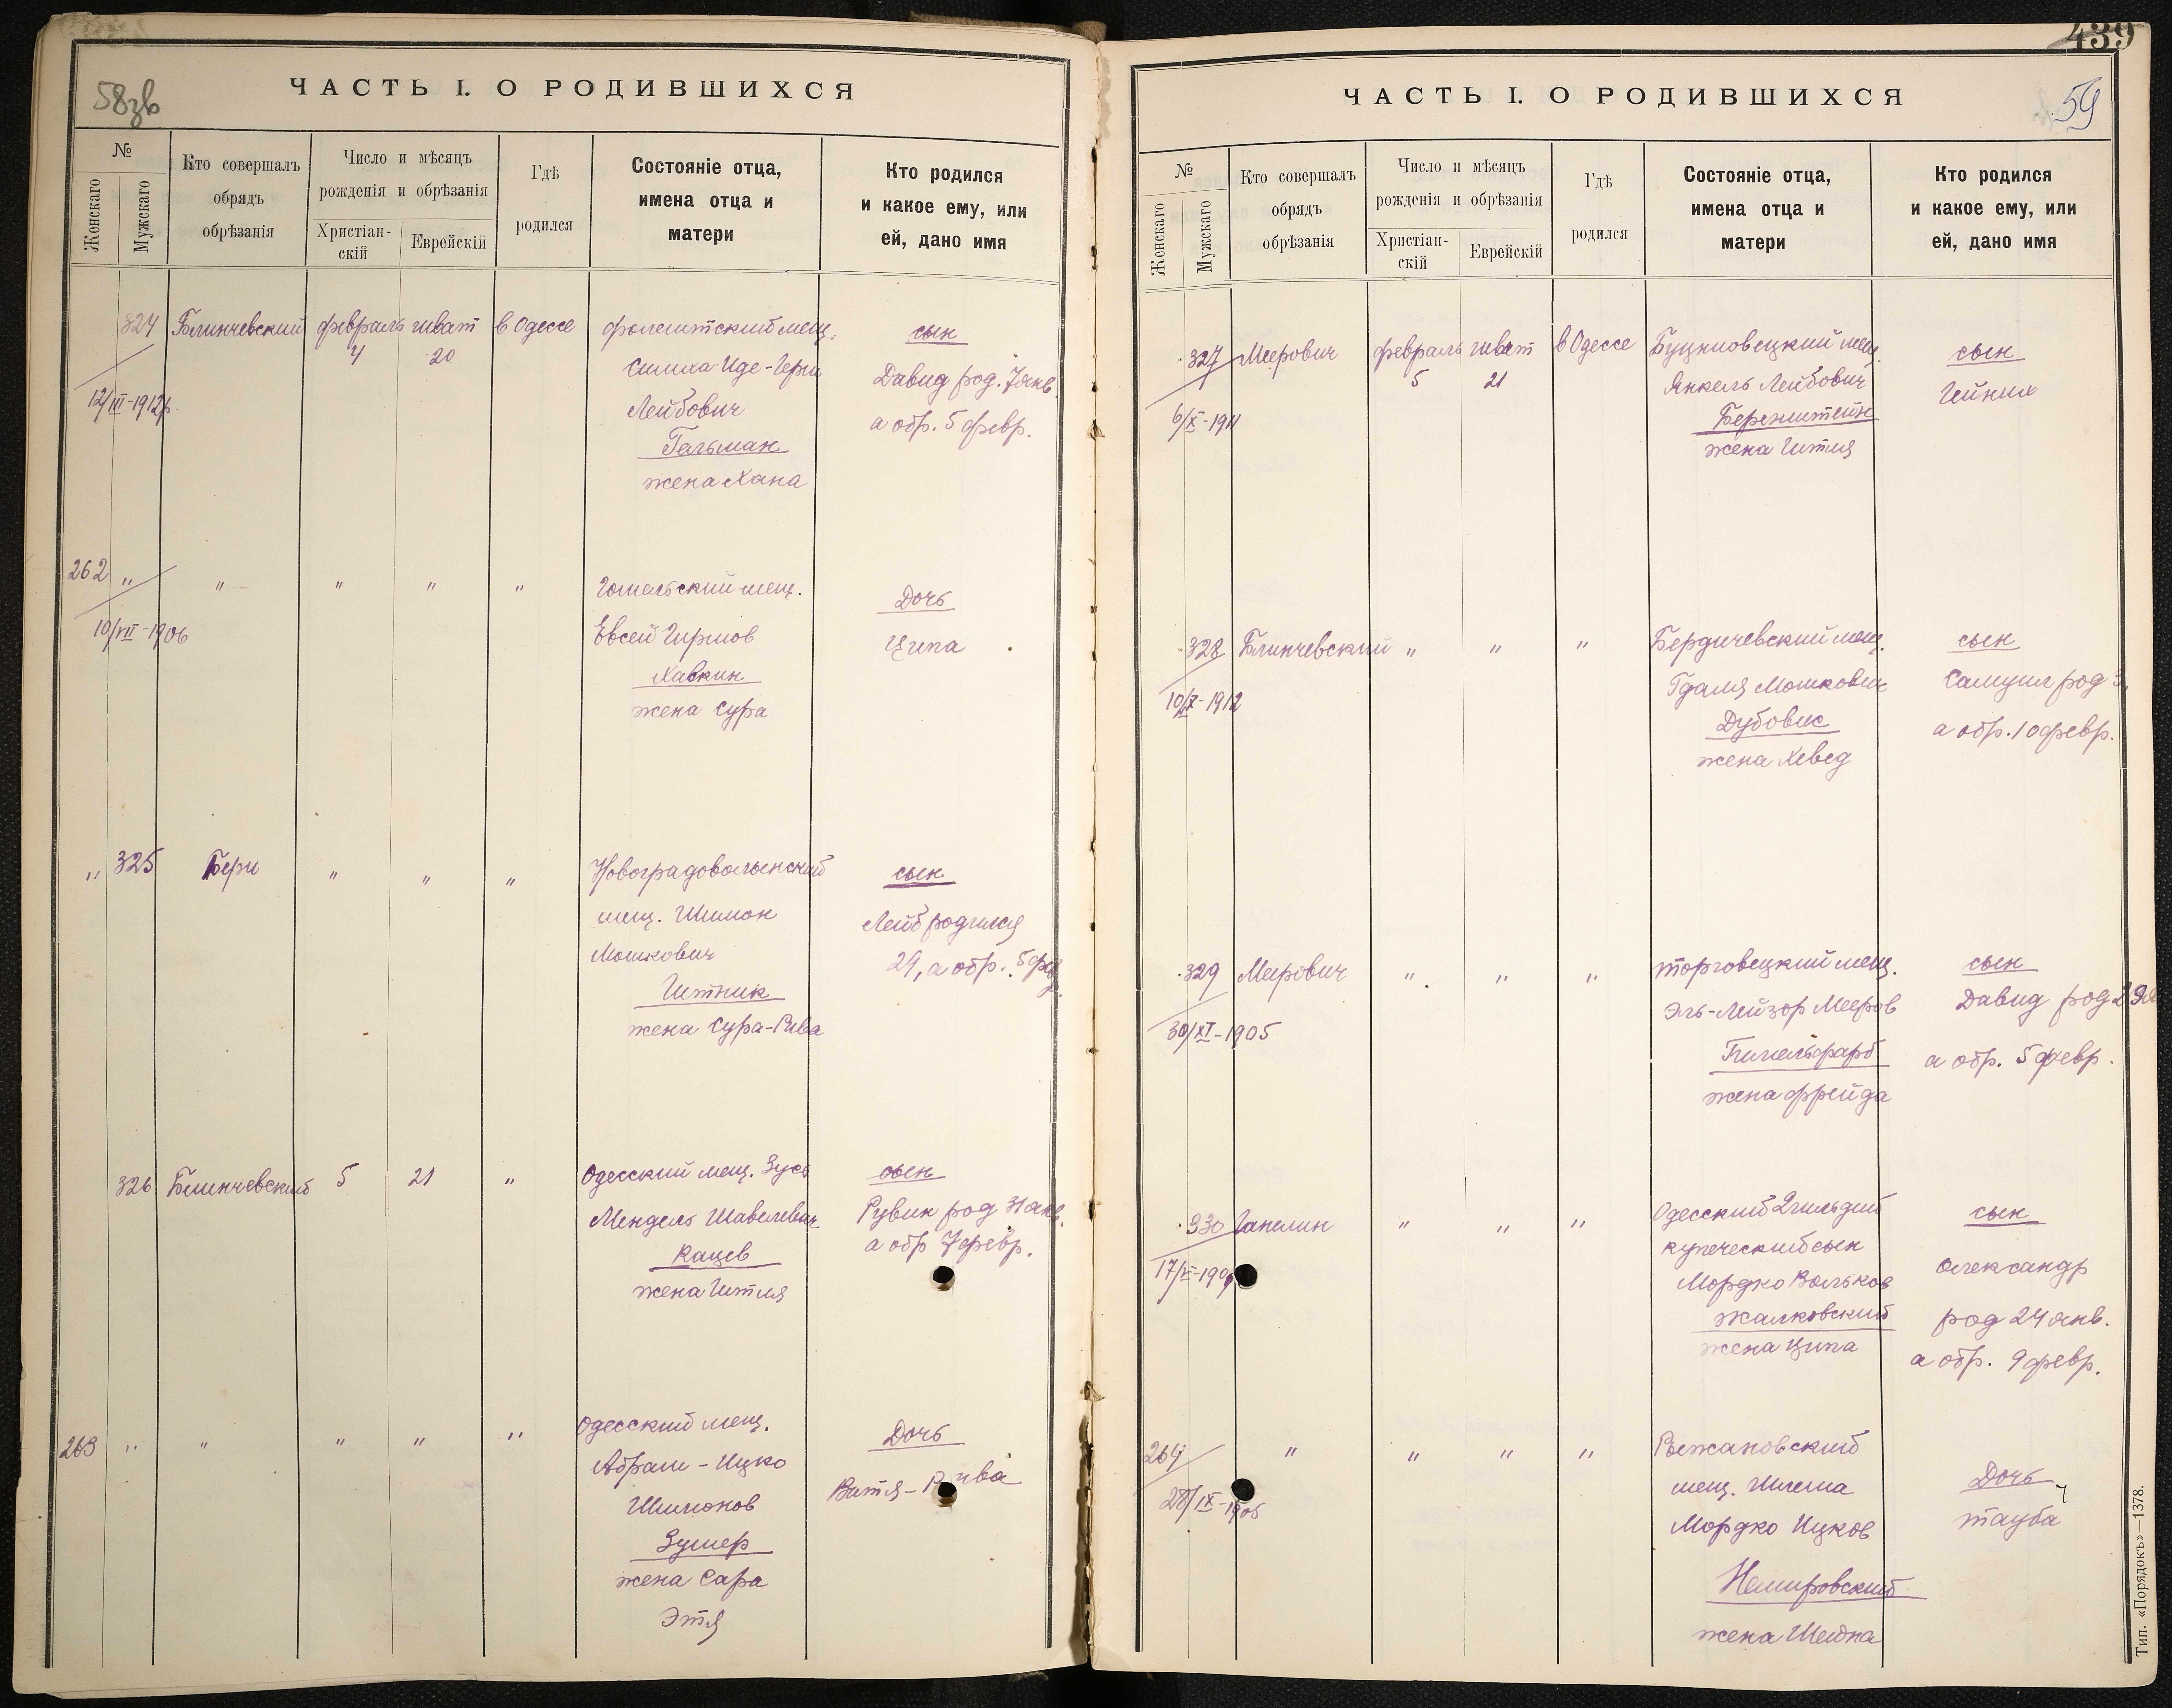 58зв
ЧАСТЬ I. О РОДИВШИХСЯ
№
Женскаго
Мужскаго
Кто совершалъ
обрядъ
обрѣзанія
Число и мѣсяцъ
рожденія и обрѣзанія
Христіан-
скій
Еврейскій
Гдѣ
родился
Состояніе отца,
имена отца и
матери
Кто родился
и какое ему, или
ей, дано имя
324 Блинчевский февраль шват в Одессе фалештский мещ. сын
4 20 Симха Иде-Герш Давид род. 7 янв.
12/III-1912 Лейбович а обр. 5 февр.
Гальман
жена Хана
262 " " " " " Гомельский мещ. Дочь
10/VII-1906 Евсей Гиршов Ципа
Хавкин
жена Сура
" 325 Бери " " " Новоградоволынский сын
мещ. Шимон Лейб родился
Мошкович 29, а обр. 5 фев
Гитник
жена Сура-Рива
326 Блинчевский 5 21 " Одесский мещ. Зусь сын
Мендель Шавелевич Рувин род 31 янв.
Кацев а обр 7 февр.
жена Гитля
263 " " " " " Одесский мещ. Дочь
Абрам-Ицко
Шимонов
Зушер
жена Сара
Этя
439
59
ЧАСТЬ I. О РОДИВШИХСЯ
№
Женскаго
Мужскаго
Кто совершалъ
обрядъ
обрѣзанія
Число и мѣсяцъ
рожденія и обрѣзанія
Христіан-
скій
Еврейскій
Гдѣ
родился
Состояніе отца,
имена отца и
матери
Кто родился
и какое ему, или
ей, дано имя
327 Меерович февраль шват в Одессе мещ. сын
5 21 Янкель Лейбович Гейних
6/X-1911 Беренштейн
жена Гитля
328 Блинчевский " " " Бердичевский мещ. сын
Гдаля Мошкович Самуил род 3,
Дубовис а обр. 10 февр.
жена Хевед
329 Меерович " " " торговецкий мещ. сын
Эль-Лейзор Мееров Давид род 29
30/XI-1905 а обр. 5 февр.
жена Фрейда
330 Гапелин " " " Одесский 2 гильдий сын
купеческий сын Олександр
Мордко Вольков род 24 янв.
Жалковский а обр. 9 февр.
жена Ципа
264 " " " " Рыжановский Дочь
28/IX-1905 мещ. Шлема тауба
Мордко Ицков
Немировский
жена Шейна
Тип. «Порядокъ»—1378.